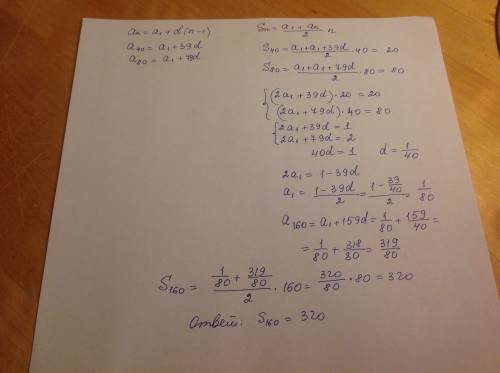 aₙ = a₁ + d(n-1)
a₄₀ = a₁ + 39d
a₈₀ = a₁ + 79d
Sₙ = (a₁ + aₙ)/2 · n
S₄₀ = (a₁ + a₁ + 39d)/2 · 40 = 20
S₈₀ = (a₁ + a₁ + 79d)/2 · 80 = 80
{ (2a₁ + 39d) · 20 = 20
(2a₁ + 79d) · 40 = 80
{ 2a₁ + 39d = 1
2a₁ + 79d = 2
40d = 1 d = 1/40
2a₁ = 1 - 39d
a₁ = (1 - 39d)/2 = (1 - 39/40)/2 = 1/80
a₁₆₀ = a₁ + 159d = 1/80 + 159/40 =
= 1/80 + 318/80 = 319/80
S₁₆₀ = (1/80 + 319/80)/2 · 160 = 320/80 · 80 = 320
Ответ: S₁₆₀ = 320